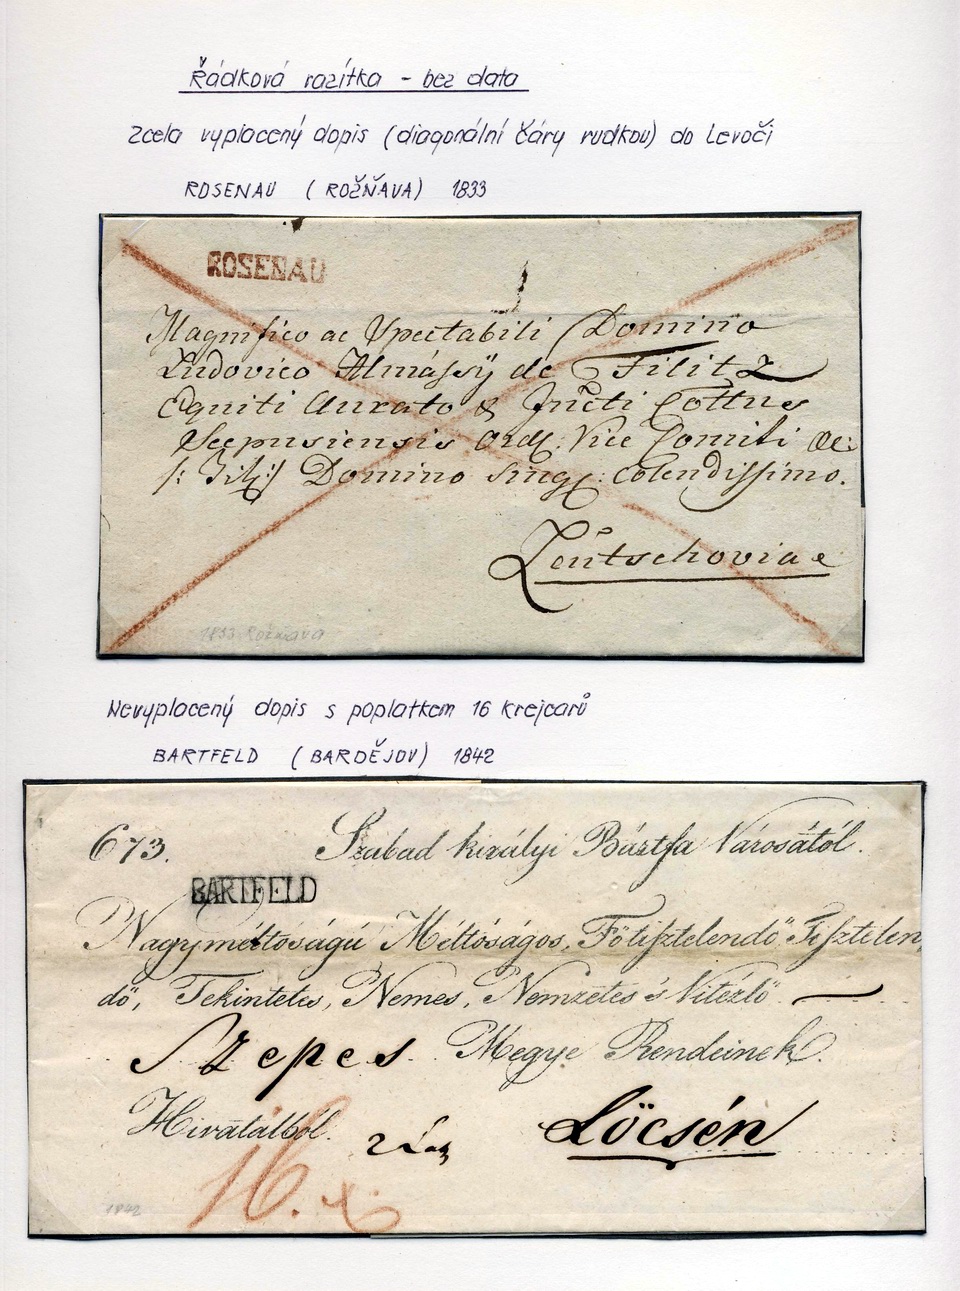 Řádková razítka - bez data
Zcela vyplacený dopis (diagonální čáry rudkou) do Levoči
ROSENAU (ROŽŇAVA) 1833
ROSENAU
Magnifico ac Spectabili Domino
Ludovico Almássÿ de Filitz
Equiti Aurato & Incti Cottus
Scepusiensis Ord. Vice Comiti
Domino singl: Colendissimo.
Leütschoviae
1833 Rožňava
Nevyplacený dopis s poplatkem 16 krejcarů
BARTFELD (BARDĚJOV) 1842
673. Szabad királyi Bártfa Városától.
BARTFELD
Nagyméltóságú Méltóságos, Fötisztelendő Tisztelen
dő, Tekintetes, Nemes, Nemzetes s Vitézlő
Szepes Megye Rendeinek
Hivatalból. Löcsén
16. x
1842